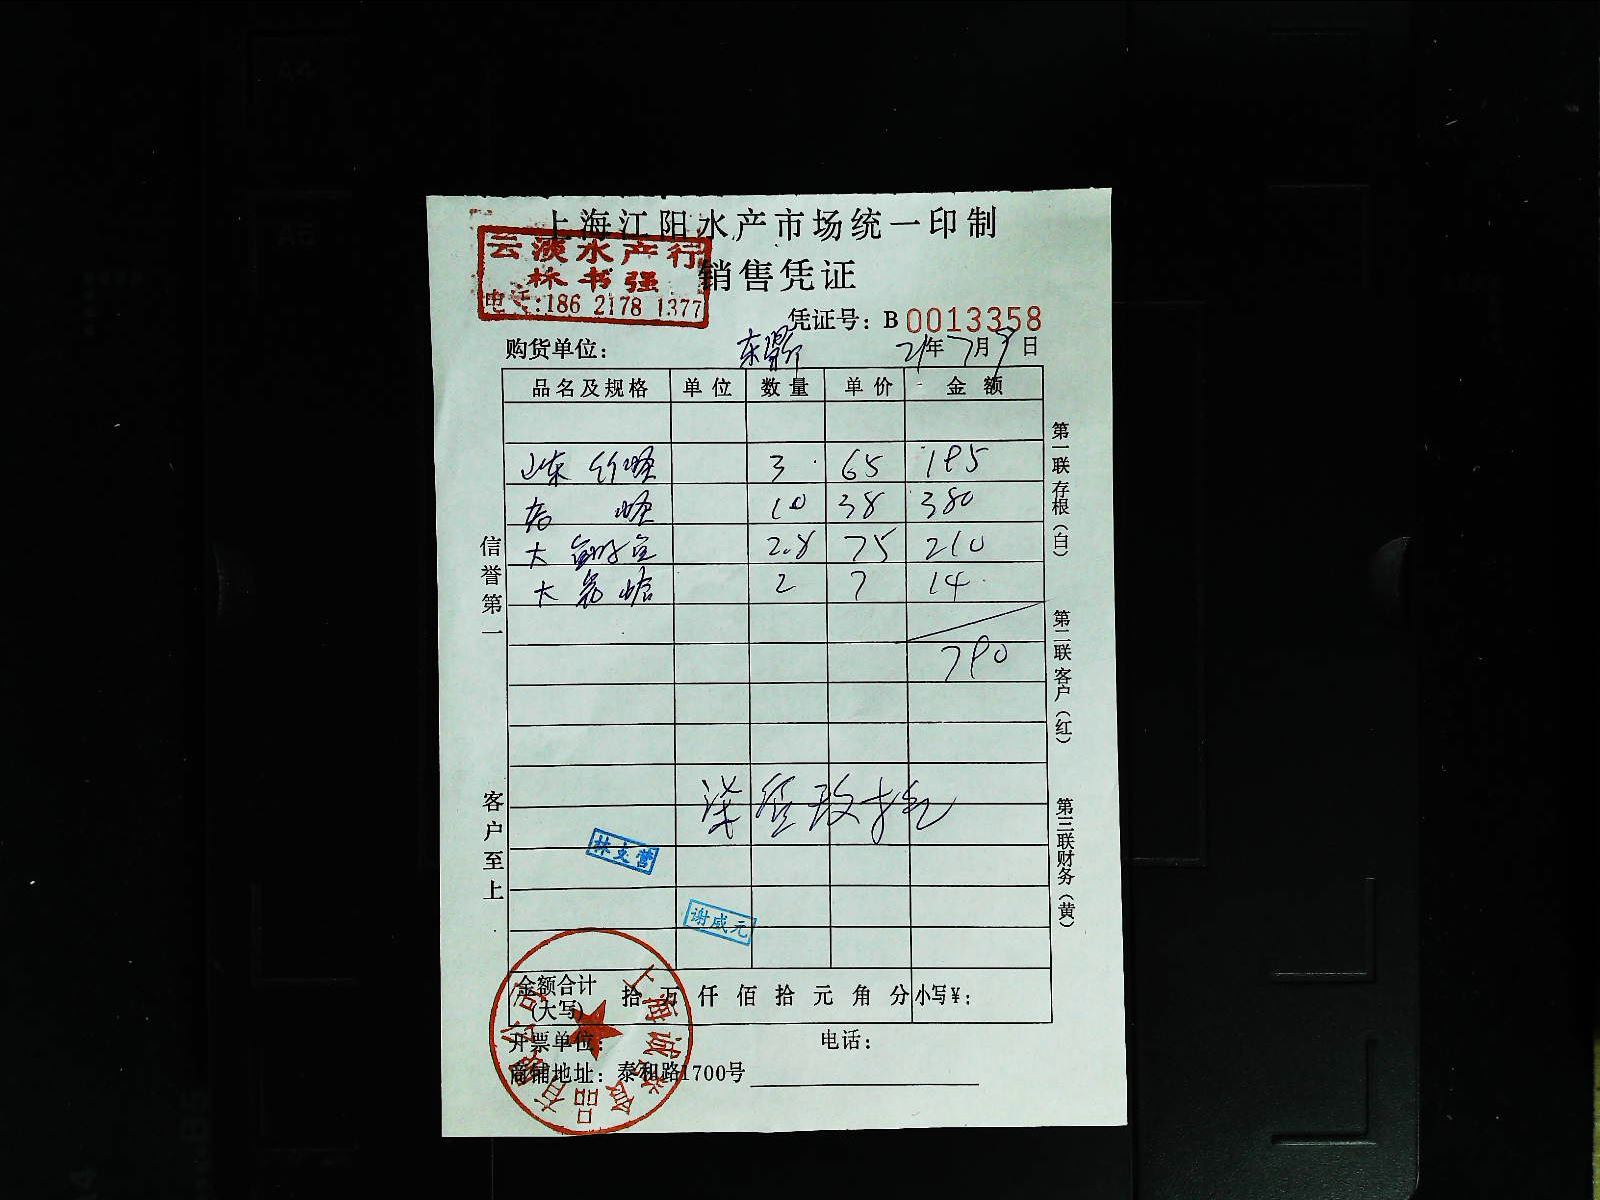 上海江阳水产市场统一印制
云淡水产行
林书强
电话:186 2178 1377
销售凭证
凭证号: B 0013358
购货单位:
21年7月9日
品名及规格 单位 数量 单价 金额
山东 竹蛏 3 65 195
蛏 10 38 380
大 2.8 75 210
大 2 7 14
790
第一联存根(白)
第二联客户(红)
第三联财务(黄)
信誉第一
客户至上
林文营
谢成元
金额合计(大写) 拾 万 仟 佰 拾 元 角 分 小写¥:
开票单位: 电话:
商铺地址: 泰和路1700号